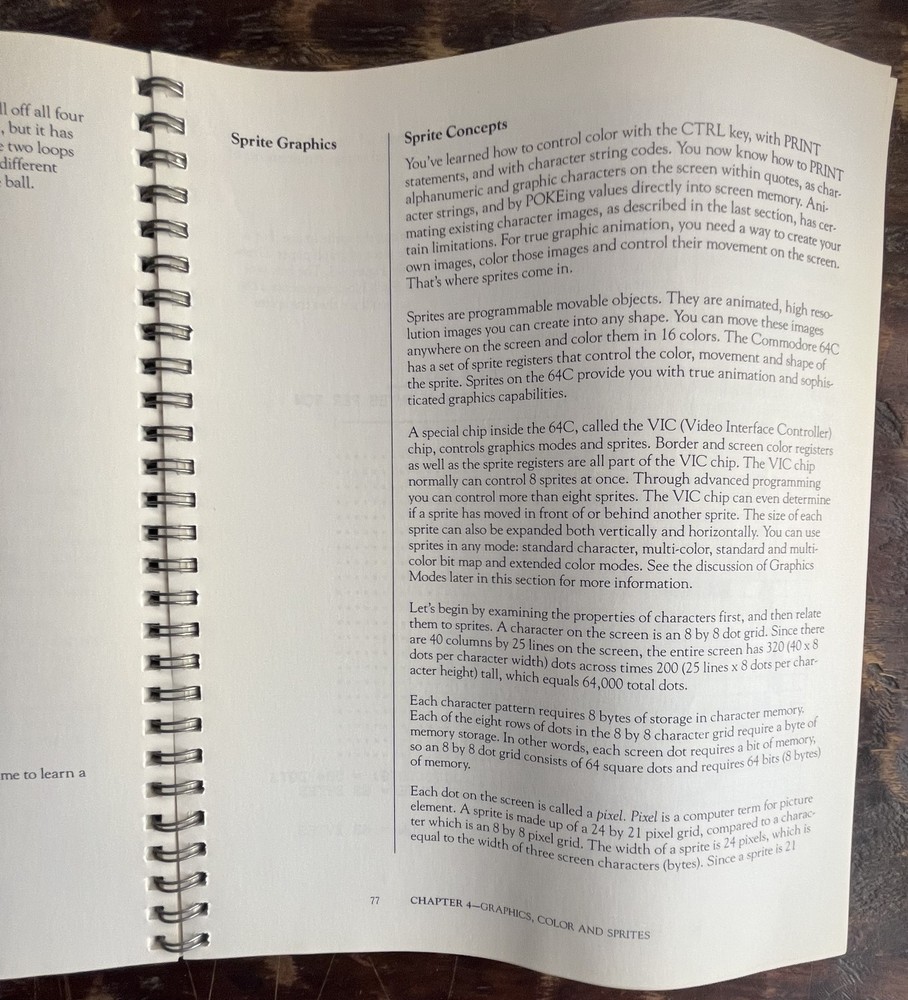 ll off all four
, but it has
e two loops
different
ball.
me to learn a
Sprite Graphics
Sprite Concepts
You've learned how to control color with the CTRL key, with PRINT
statements, and with character string codes. You now know how to PRINT
alphanumeric and graphic characters on the screen within quotes, as char-
acter strings, and by POKEing values directly into screen memory. Ani-
mating existing character images, as described in the last section, has cer-
tain limitations. For true graphic animation, you need a way to create your
own images, color those images and control their movement on the screen.
That's where sprites come in.
Sprites are programmable movable objects. They are animated, high reso-
lution images you can create into any shape. You can move these images
anywhere on the screen and color them in 16 colors. The Commodore 64C
has a set of sprite registers that control the color, movement and shape of
the sprite. Sprites on the 64C provide you with true animation and sophis-
ticated graphics capabilities.
A special chip inside the 64C, called the VIC (Video Interface Controller)
chip, controls graphics modes and sprites. Border and screen color registers
as well as the sprite registers are all part of the VIC chip. The VIC chip
normally can control 8 sprites at once. Through advanced programming
you can control more than eight sprites. The VIC chip can even determine
if a sprite has moved in front of or behind another sprite. The size of each
sprite can also be expanded both vertically and horizontally. You can use
sprites in any mode: standard character, multi-color, standard and multi-
color bit map and extended color modes. See the discussion of Graphics
Modes later in this section for more information.
Let's begin by examining the properties of characters first, and then relate
them to sprites. A character on the screen is an 8 by 8 dot grid. Since there
are 40 columns by 25 lines on the screen, the entire screen has 320 (40 x 8
dots per character width) dots across times 200 (25 lines x 8 dots per char-
acter height) tall, which equals 64,000 total dots.
Each character pattern requires 8 bytes of storage in character memory.
Each of the eight rows of dots in the 8 by 8 character grid require a byte of
memory storage. In other words, each screen dot requires a bit of memory,
so an 8 by 8 dot grid consists of 64 square dots and requires 64 bits (8 bytes)
of memory.
Each dot on the screen is called a pixel. Pixel is a computer term for picture
element. A sprite is made up of a 24 by 21 pixel grid, compared to a charac-
ter which is an 8 by 8 pixel grid. The width of a sprite is 24 pixels, which is
equal to the width of three screen characters (bytes). Since a sprite is 21
77 CHAPTER 4—GRAPHICS, COLOR AND SPRITES